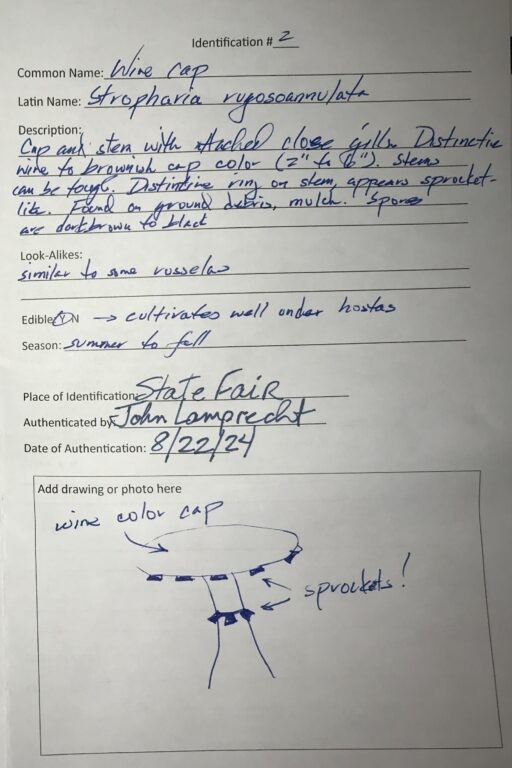 Identification # 2
Common Name: Wine cap
Latin Name: Stropharia rugosoannulata
Description:
Cap and stem with attached close gills. Distinctive
wine to brownish cap color (2" to 6"). Stems
can be tough. Distintive ring on stem, appears sprocket-
like. Found on ground debris, mulch. Spores
are dark brown to black
Look-Alikes:
similar to some russelas
Edible: Y N → cultivates well under hostas
Season: summer to fall
Place of Identification: State Fair
Authenticated by: John Lamprecht
Date of Authentication: 8/22/24
Add drawing or photo here
wine color cap
sprockets!